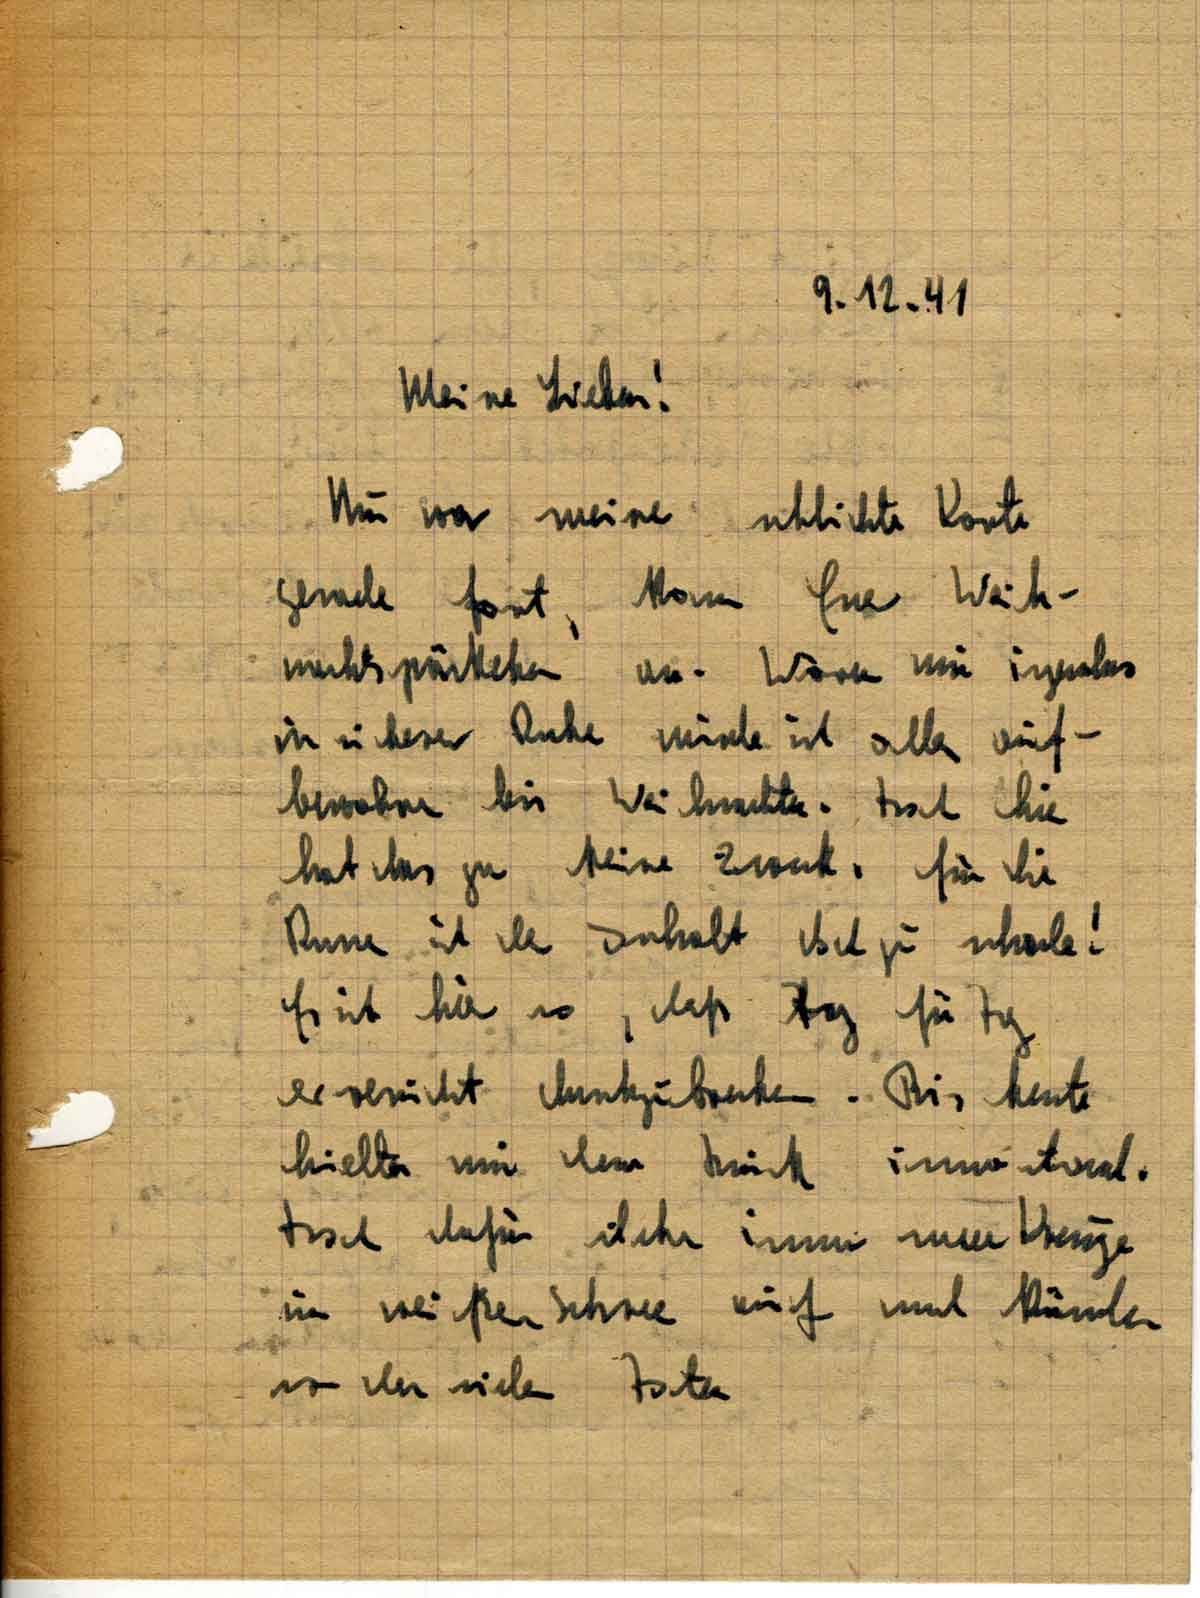 9.12.41
Meine Lieben!
Nun war meine schlichte Karte
gerade fort, kam Euer Weih-
nachtspäckchen an. Wären wir irgendwo
in sicherer Ruhe würde ich alles auf-
bewahren bis Weihnachten. Doch hier
hat das gar keinen Zweck. Für die
Russen ist der Inhalt doch zu schade!
Es ist hier so, daß Tag für Tag
er versucht durchzubrechen. Bis heute
hielten wir dem Druck immer stand.
Doch dafür stehen immer neue Kreuze
im weißen Schnee auf und künden
von den vielen Toten